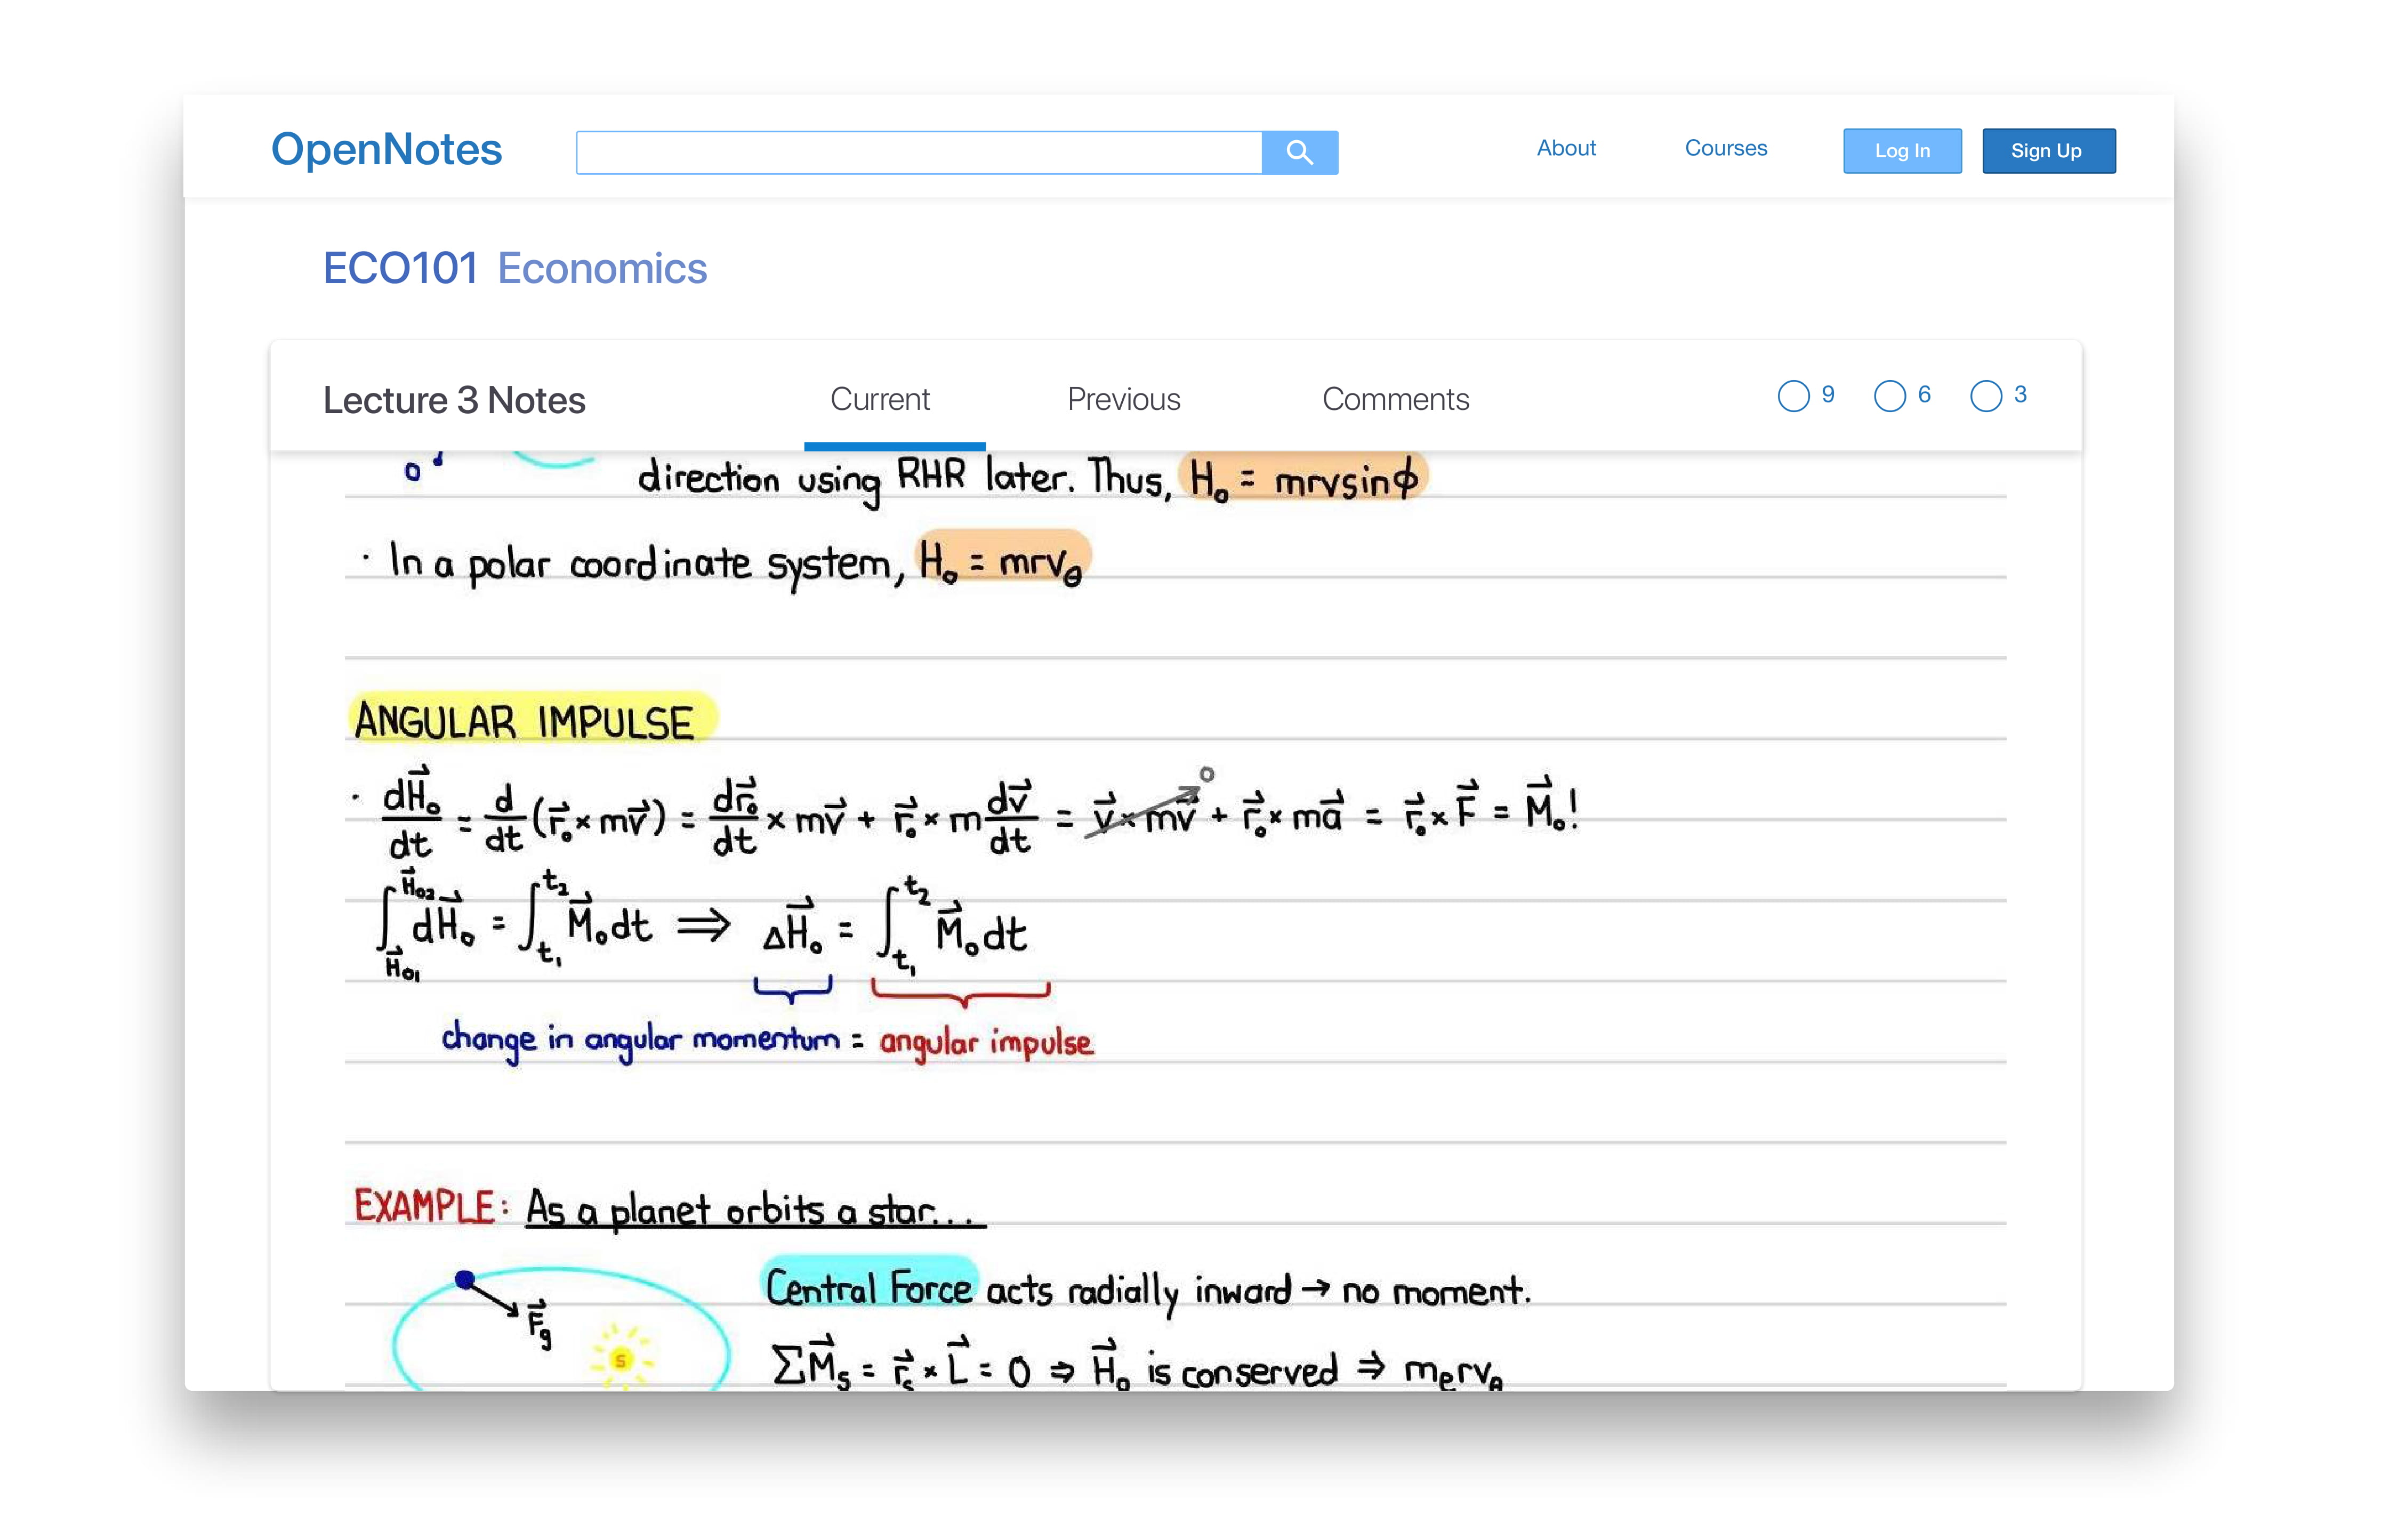 OpenNotes
About Courses Log In Sign Up
ECO101 Economics
Lecture 3 Notes Current Previous Comments 9 6 3
direction using RHR later. Thus, H₀ = mrvsinϕ
· In a polar coordinate system, H₀ = mrv_θ
ANGULAR IMPULSE
· dH⃗₀/dt = d/dt (r⃗₀ × mv⃗) = dr⃗₀/dt × mv⃗ + r⃗₀ × m dv⃗/dt = v⃗ × mv⃗ 0 + r⃗₀ × ma⃗ = r⃗₀ × F⃗ = M⃗₀!
∫_{H⃗₀₁}^{H⃗₀₂} dH⃗₀ = ∫_{t₁}^{t₂} M⃗₀dt ⇒ ΔH⃗₀ = ∫_{t₁}^{t₂} M⃗₀dt
change in angular momentum = angular impulse
EXAMPLE: As a planet orbits a star...
Central Force acts radially inward → no moment.
F⃗g
S
ΣM⃗s = r⃗s × L⃗ = 0 ⇒ H⃗₀ is conserved ⇒ m_erv_θ